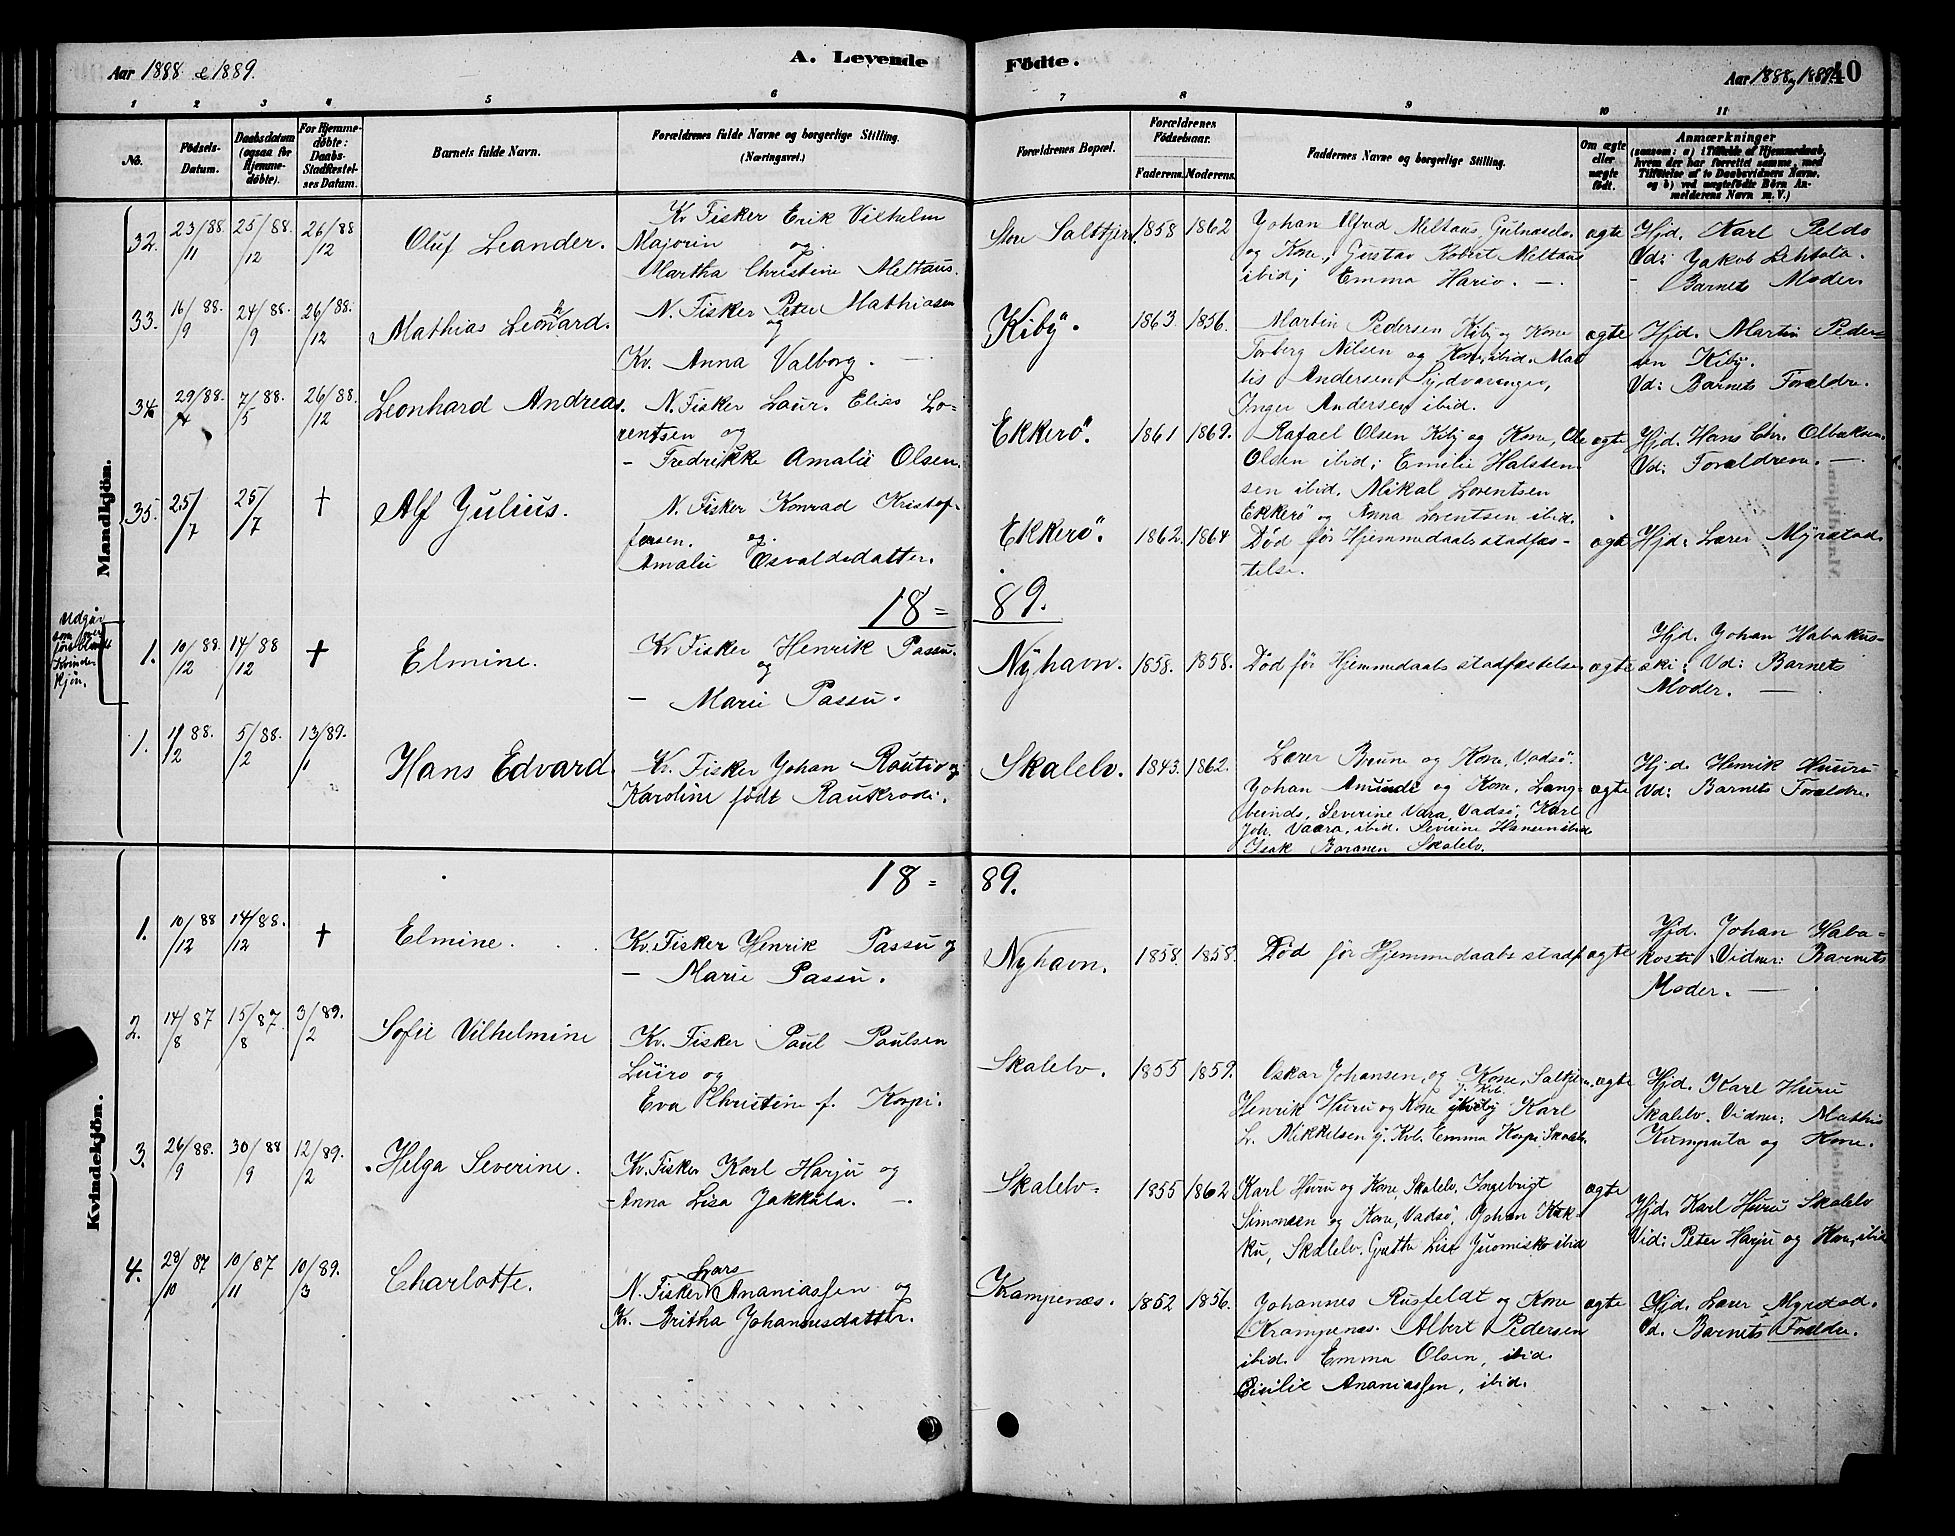 Aar 1888 & 1889.
A. Levende
Fødte.
Aar 1888 og 1889.
40
1 2 3 4 5 6 7 8 9 10 11
No.
Fødsels-Datum.
Daabsdatum (ogsaa for Hjemme-døbte).
For Hjemme-døbte: Daabs-Stadfæstel-ses Datum.
Barnets fulde Navn.
Forældrenes fulde Navne og borgerlige Stilling.
(Næringsvei.)
Forældrenes Bopæl.
Forældrenes Fødselsaar.
Faderens. Moderens.
Faddernes Navne og borgerlige Stilling.
Om ægte eller uægte født.
Anmærkninger
(saasom: a) i Tilfælde af Hjemmedaab,
hvem der har forrettet samme, med
Tilføielse af to Daabsvidners Navne.
og b) ved uægtefødte Børn An-
melderens Navn m.V.)
Mandkjøn.
32. 23/11 88. 25/12 88. 26/12 88 Oluf Leander.
Kv Fisker Erik Vilhelm
Majorin og
Martha Christine Meltaus.
Store Saltfjern. 1858 1862
Johan Alfred Meltaus,
og Kone, Gustav Robert Meltaus
ibid; Emma Hario. —
ægte
Hjd. Karl Peldo
Vd: Jakob Lehtola.
- Barnets Moder.
33. 16/9 88. 24/9 88. 26/12 88. Mathias Leonhard.
N. Fisker Peter Mathiasen
og
Kv. Anna Valborg. —
Kiby. 1863. 1856.
Martin Pedersen Kiby og Kone
Torberg Nilsen og Kone, ibid. Mat
tis Andersen Sydvaranger,
Inger Andersen ibid.
ægte
Hjd. Martin Peder=
sen Kiby.
Vd: Barnets Forældre.
34. 29/4 88. 7/5 88. 26/12 88. Leonhard Andreas.
N. Fisker Laur. Elias Lo=
rentsen og
- Fredrikke Amalie Olsen.
Ekkerö. 1861 1869.
Rafael Olsen Kiby og Kone, Ole
Olsen ibid; Emilie Halsten
sen ibid. Mikal Lorentsen
Ekkerö og Anna Lorentsen ibid.
ægte
Hjd. Hans Chr. Olbaksen.
Vd: Forældrene. —
35. 25/7 25/7 † Alf Julius.
N. Fisker Konrad Kristof-
fersen. og
Amalie Osvaldsdatter.
Ekkerö. 1862. 1864
Død før Hjemmedaabsstadfæs=
telse.
ægte
Hjd: Lærer Myrstad.
18 = 89.
Udgår
som over
ført blandt
Kvinde-
kjøn.
1. 10/12 88. 14/12 88 † Elmine.
Kv Fisker Henrik Passu.
og
— Marie Passu.
Nyhavn. 1858. 1858.
Død før Hjemmedaabs stadfæstelsen
ægte
Hjd. Johan Habakus-
aki: Vd: Barnets
Moder. —
1. 1/2 88. 5/2 88. 13/1 89. Hans Edvard.
Kv. Fisker Johan Rautio og
Karoline født Raukrodi.
Skalelv. 1843. 1862.
Lærer Brune og Kone, Vadsø.
Johan Amundi og Kone, Lang=
beinds, Severine Vara, Vadsø, Karl
Joh. Vaara, ibid. Severine Hansen ibid
Isak Baranen Skalelv.
ægte
Hjd. Henrik Huuru
Vd: Barnets Forældre.
Kvindekjøn.
18 = 89.
1. 10/12 88 14/12 88. † Elmine.
Kv. Fisker Henrik Passu og
— Marie Passu.
Nyhavn. 1858. 1858.
Død før Hjemmedaabs stadf
ægte
Hjd. Johan Haba=
koski. Vidner: Barnets
Moder. —
2. 14/8 87 15/8 87. 3/2 89. Sofie Vilhelmine
Kv. Fisker Paul Paulsen
Luiro og
Eva Christine f. Korpi.
Skalelv. 1855 1859.
Oskar Johansen, og Kone,
Henrik Huru og Kone Karl
L. Mikkelsen j. Kvb. Emma Korpi Skalelv.
ægte
Hjd. Karl Huru
Skalelv. Vidner: Mathis
Kumpula og Kone.
3. 26/9 88. 30/9 88 12/2 89. Helga Severine.
Kv. Fisker Karl Harju og
- Anna Lisa Jakkula. —
Skalelv. 1855 1862
Karl Huru og Kone, Skalelv. Ingebrigt
Simonsen og Kone, Vadsø. Johan Kuk-
ku, Skalelv. Gretha Lisa Juomisko ibid
ægte
Hjd. Karl Huru Skalelv
Vid: Peter Harju og Kone, ibid
4. 29/10 87 10/11 87 10/3 89. Charlotte.
N. Fisker Lars Ananiassen og
Kv. Britha Johannesdatter.
Krampenæs. 1852 1856.
Johannes Rusfeldt og Kone
Krampenæs. Albert Pedersen
ibid. Emma Olsen, ibid.
Cisilie Ananiassen, ibid.
ægte
Hjd. Lærer Myrstad.
Vd. Barnets Forældre.